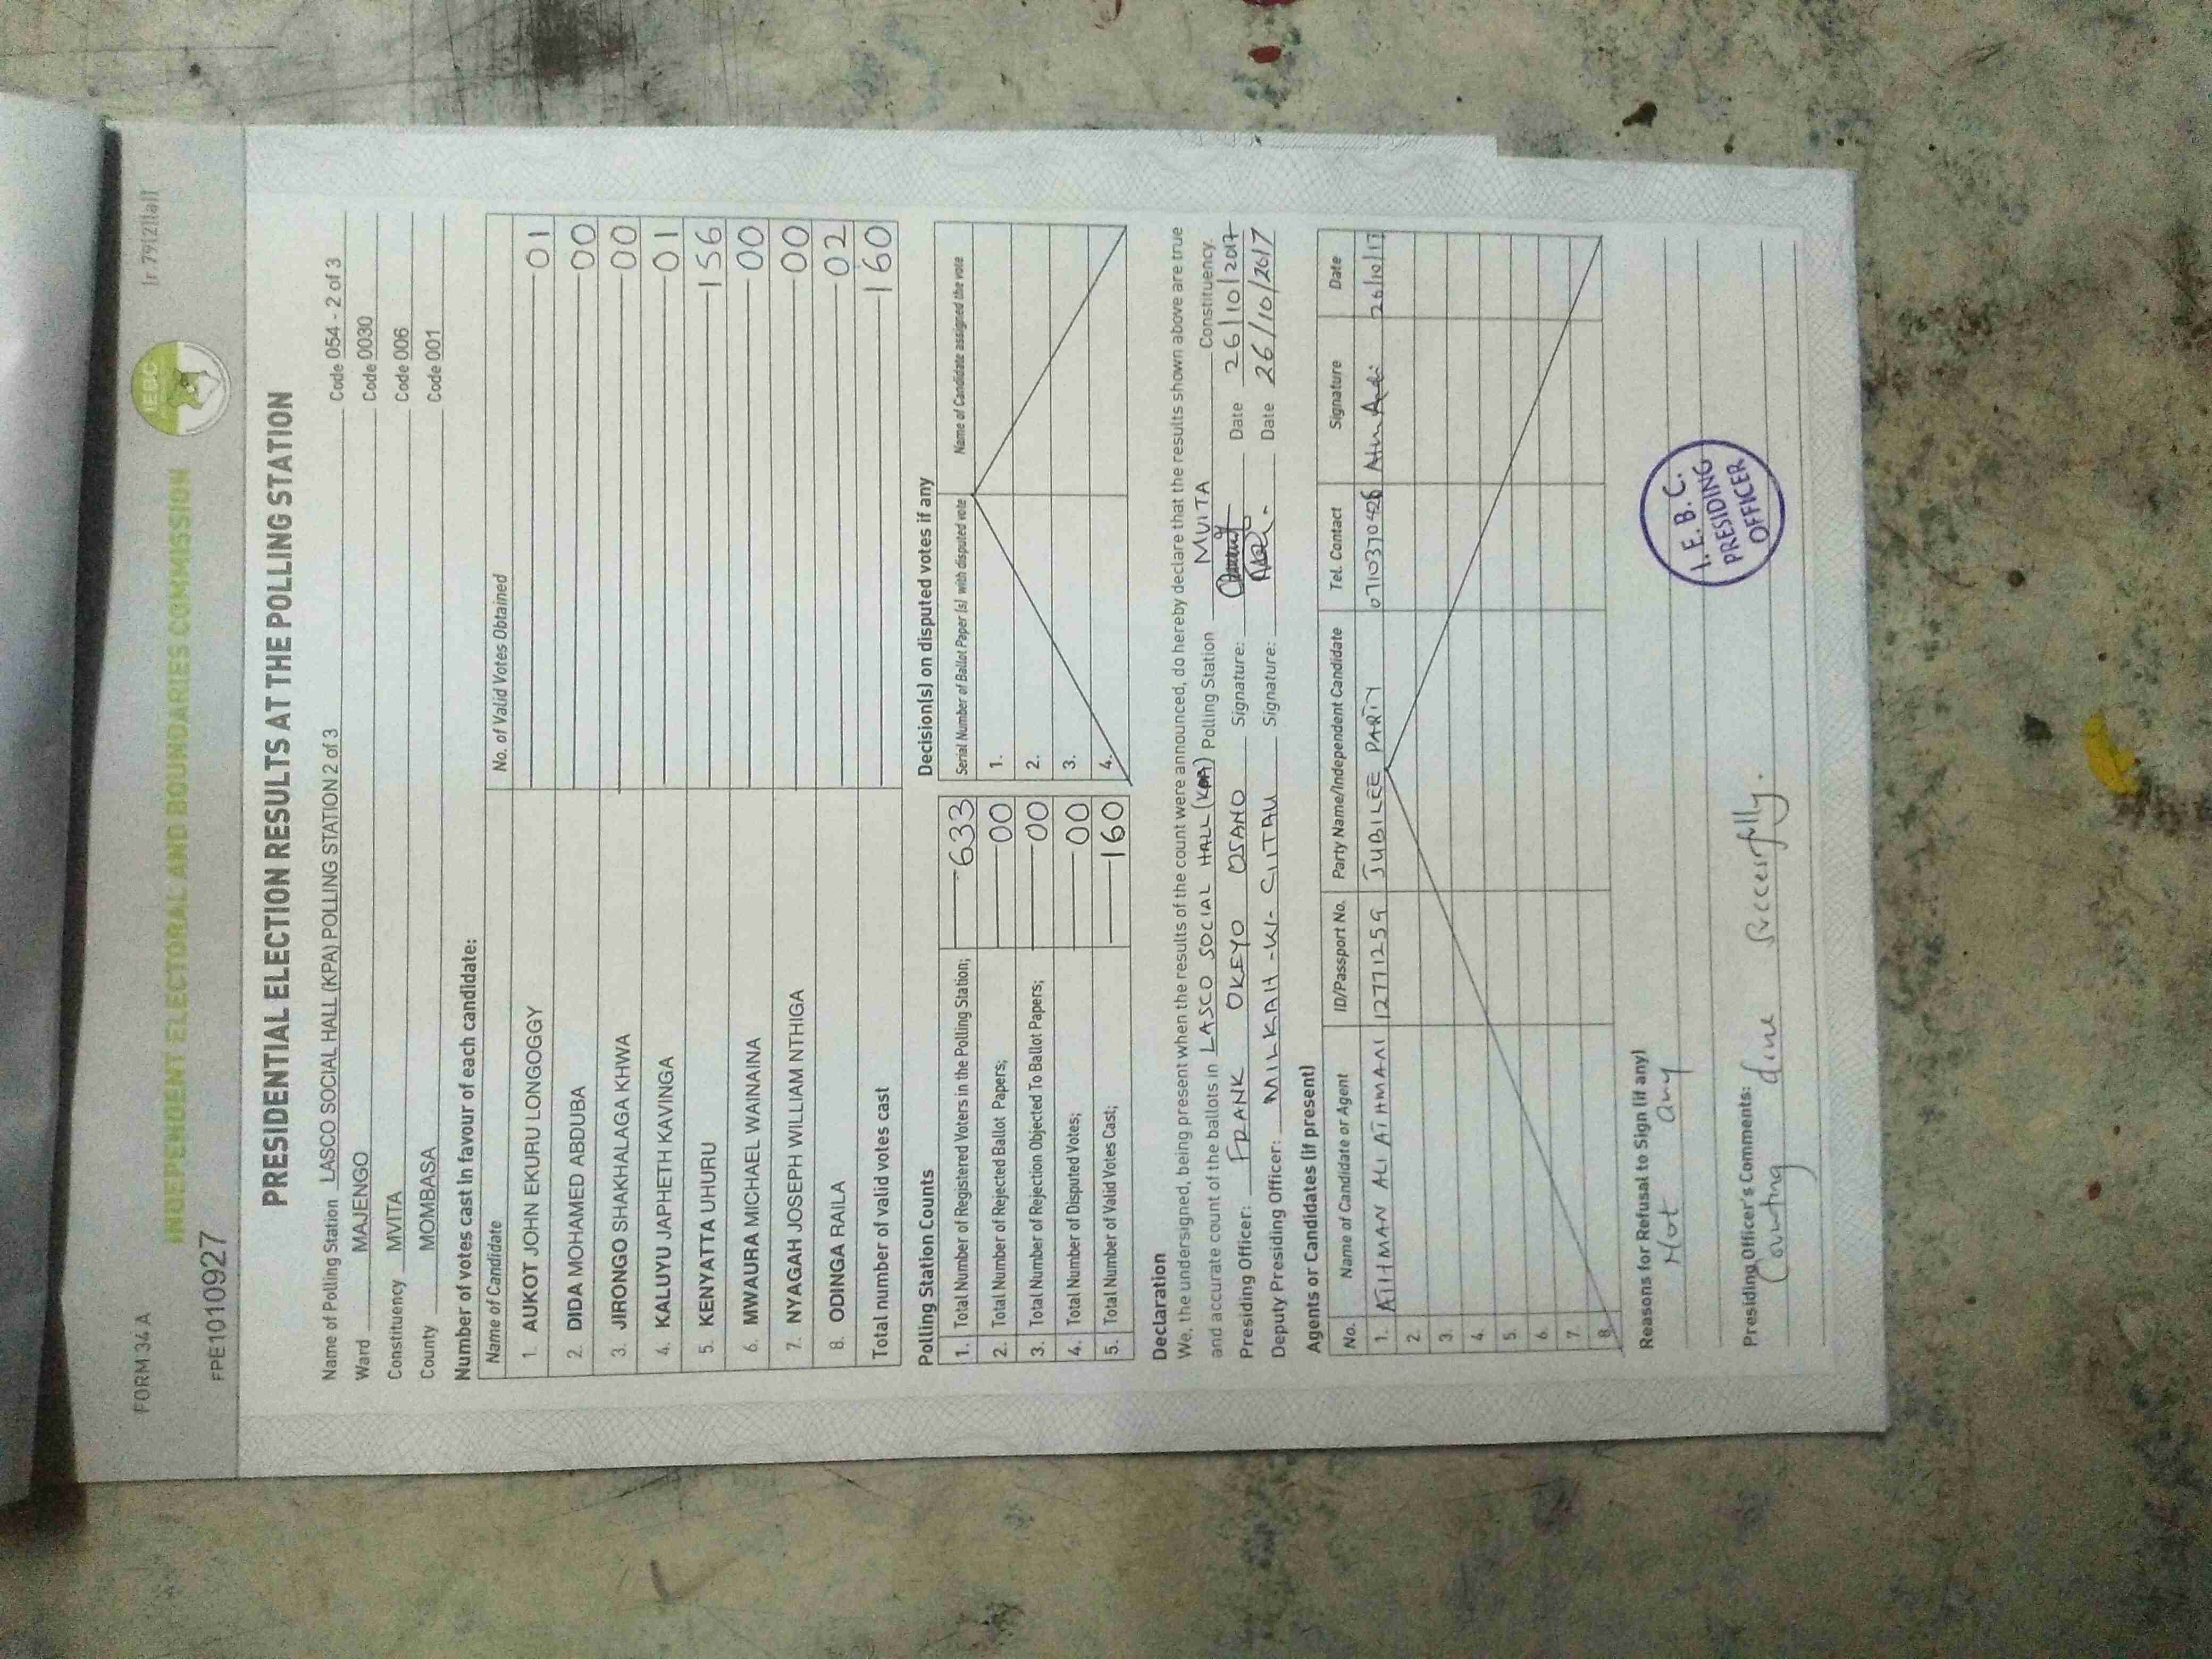 FORM 34 A
[r 79(2)(a)]
IEBC
INDEPENDENT ELECTORAL AND BOUNDARIES COMMISSION
FPE1010927
PRESIDENTIAL ELECTION RESULTS AT THE POLLING STATION
Name of Polling Station LASCO SOCIAL HALL (KPA) POLLING STATION 2 of 3 Code 054 - 2 of 3
Ward MAJENGO Code 0030
Constituency MVITA Code 006
County MOMBASA Code 001
Number of votes cast in favour of each candidate:
Name of Candidate No. of Valid Votes Obtained
1. AUKOT JOHN EKURU LONGOGGY 01
2. DIDA MOHAMED ABDUBA 00
3. JIRONGO SHAKHALAGA KHWA 00
4. KALUYU JAPHETH KAVINGA 01
5. KENYATTA UHURU 156
6. MWAURA MICHAEL WAINAINA 00
7. NYAGAH JOSEPH WILLIAM NTHIGA 00
8. ODINGA RAILA 02
Total number of valid votes cast 160
Polling Station Counts
1. Total Number of Registered Voters in the Polling Station; 633
2. Total Number of Rejected Ballot Papers; 00
3. Total Number of Rejection Objected To Ballot Papers; 00
4. Total Number of Disputed Votes; 00
5. Total Number of Valid Votes Cast; 160
Decision(s) on disputed votes if any
Serial Number of Ballot Paper (s) with disputed vote Name of Candidate assigned the vote
1.
2.
3.
4.
Declaration
We, the undersigned, being present when the results of the count were announced, do hereby declare that the results shown above are true
and accurate count of the ballots in LASCO SOCIAL HALL (KPA) Polling Station MVITA Constituency.
Presiding Officer: FRANK OKEYO OSANO Signature: Date 26/10/2017
Deputy Presiding Officer: MILKAH Signature: Date 26/10/2017
Agents or Candidates (if present)
No. Name of Candidate or Agent ID/Passport No. Party Name/Independent Candidate Tel. Contact Signature Date
1. ATHMAN ALI ATHMANI 12771259 JUBILEE PARTY 0710370426 26/10/17
2.
3.
4.
5.
6.
7.
8.
Reasons for Refusal to Sign (if any)
Not any
Presiding Officer's Comments:
Counting done successfully.
I.E.B.C.
PRESIDING
OFFICER